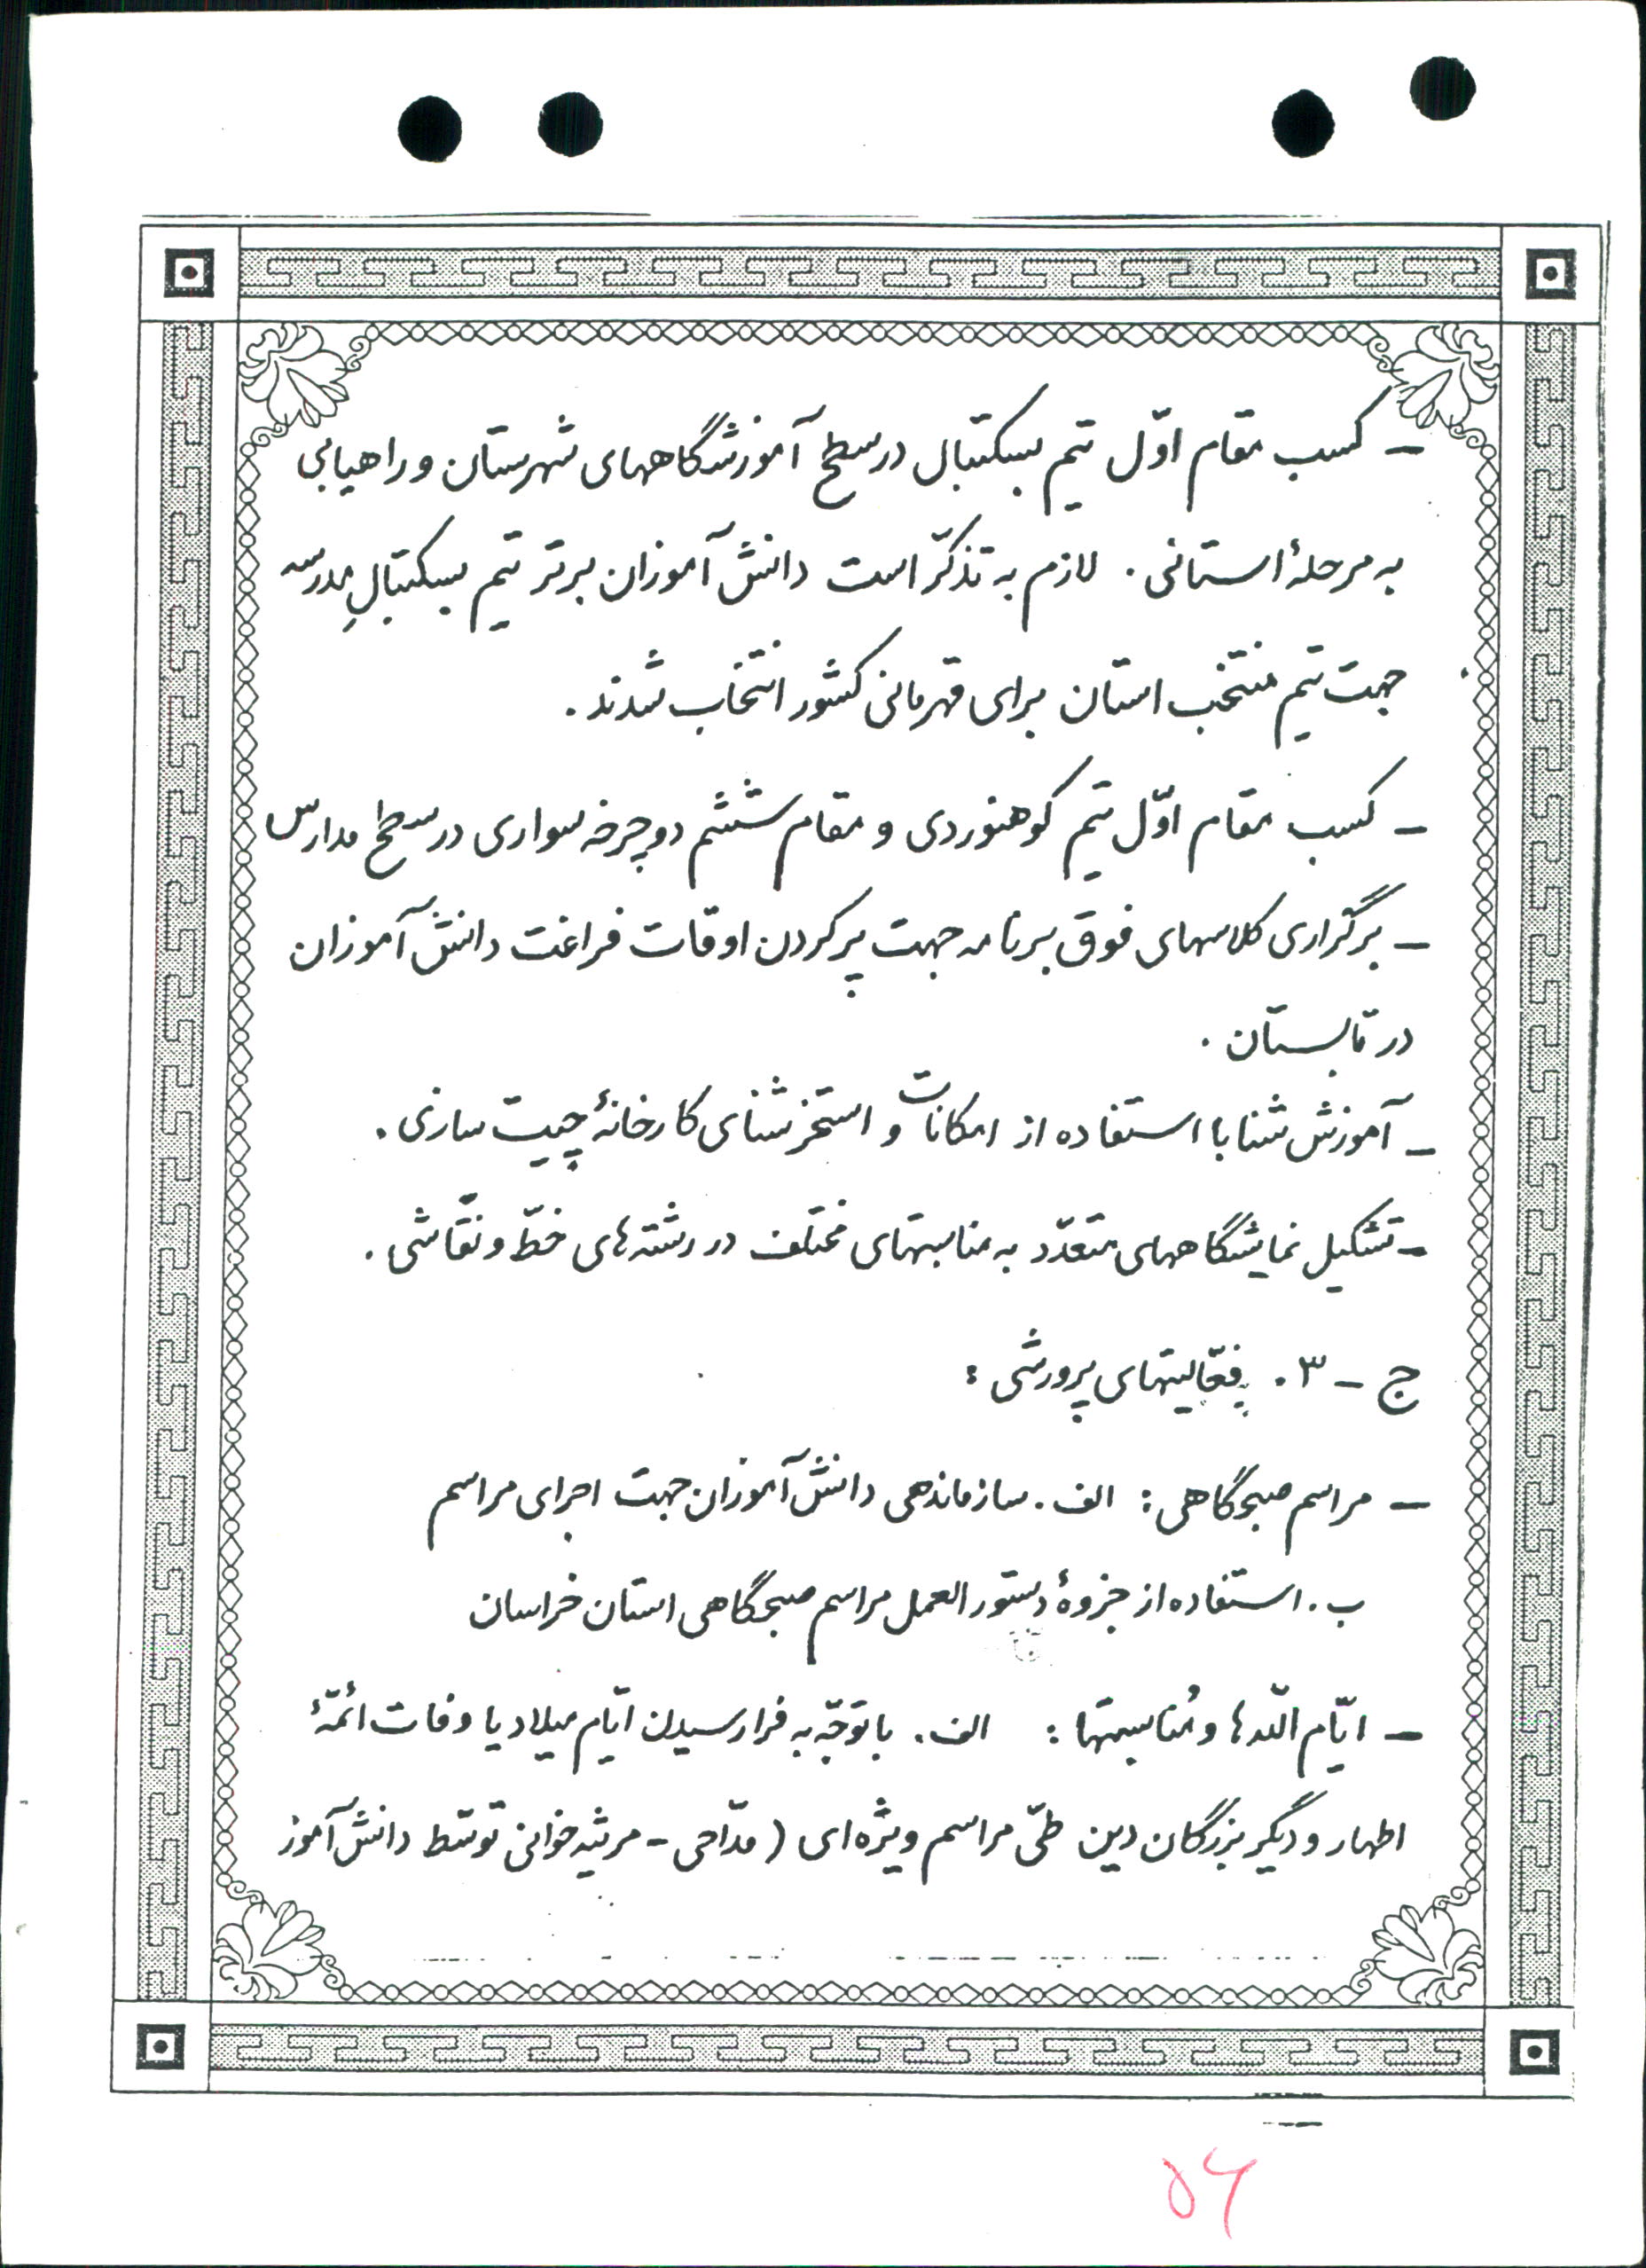 - کسب مقام اوّل تیم بسکتبال درسطح آموزشگاههای شهرستان و راهیابی
به مرحلۀ استانی . لازم به تذکّر است دانش آموزان برتر تیم بسکتبالِ مدرسه
جهت تیم منتخب استان برای قهرمانی کشور انتخاب شدند .
- کسب مقام اوّل تیم کوهنوردی و مقام ششم دوچرخه سواری در سطح مدارس
- برگزاری کلاسهای فوق برنامه جهت پر کردن اوقات فراغت دانش آموزان
در تابستان .
- آموزش شنا با استفاده از امکانات و استخر شنای کارخانۀ چیت سازی .
- تشکیل نمایشگاههای متعدّد به مناسبتهای مختلف در رشته های خطّ و نقّاشی .
ج - ۳ . فعّالیتهای پرورشی :
- مراسم صبحگاهی : الف . سازماندهی دانش آموزان جهت اجرای مراسم
ب . استفاده از جزوۀ دستورالعمل مراسم صبحگاهی استان خراسان
- ایّام اللّه ها و مُناسبتها : الف . با توجّه به فرا رسیدن ایّام میلاد یا وفات ائمّۀ
اطهار و دیگر بزرگان دین طیّ مراسم ویژه ای ( مدّاحی - مرثیه خوانی توسّط دانش آموز
۵۶